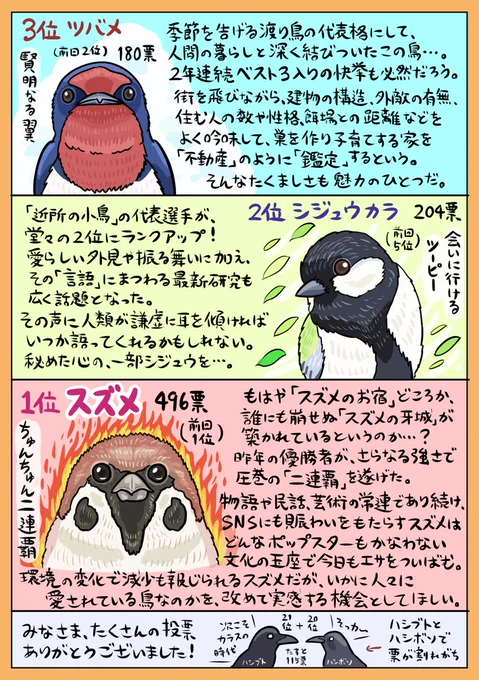 3位 ツバメ
(前回2位) 180票
賢明なる翼
季節を告げる渡り鳥の代表格にして、
人間の暮らしと深く結びついたこの鳥…。
2年連続ベスト3入りの快挙も必然だろう。
街を飛びながら、建物の構造、外敵の有無、
住む人の数や性格、餌場との距離などを
よく吟味して、巣を作り子育てする家を
「不動産」のように「鑑定」するという。
そんなたくましさも魅力のひとつだ。
2位 シジュウカラ 204票
(前回5位)
会いに行ける
ツーピー
「近所の小鳥」の代表選手が、
堂々の2位にランクアップ!
愛らしい外見や振る舞いに加え、
その「言語」にまつわる最新研究も
広く話題となった。
その声に人類が謙虚に耳を傾ければ
いつか語ってくれるかもしれない。
秘めた心の、一部シジュウを…。
1位 スズメ 496票
(前回1位)
ちゅんちゅん二連覇
もはや「スズメのお宿」どころか、
誰にも崩せぬ「スズメの牙城」が
築かれているというのか…?
昨年の優勝者が、さらなる強さで
圧巻の「二連覇」を遂げた。
物語や民話、芸術の常連であり続け、
SNSにも賑わいをもたらすスズメは
どんなポップスターもかなわない
文化の玉座で今日もエサをついばむ。
環境の変化で減少も報じられるスズメだが、いかに人々に
愛されている鳥なのかを、改めて実感する機会としてほしい。
みなさま、たくさんの投票
ありがとうございました!
次こそ
カラスの
時代
21位 + 20位
たすと
115票
そっかー
ハシブト
ハシボソ
ハシブトと
ハシボソで
票が割れがち